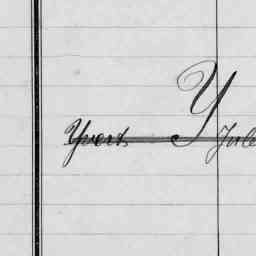 Y
Yvert Jule